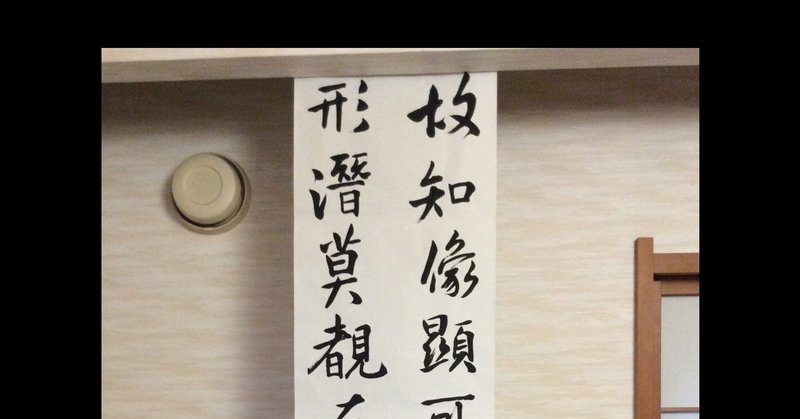 故知像顯可
形潛莫覩在